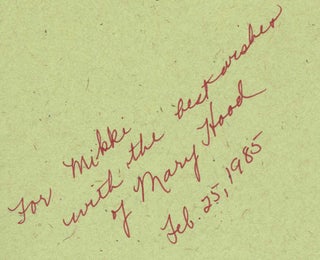 For Mikki
with the best wishes
of Mary Hood
Feb. 25, 1985